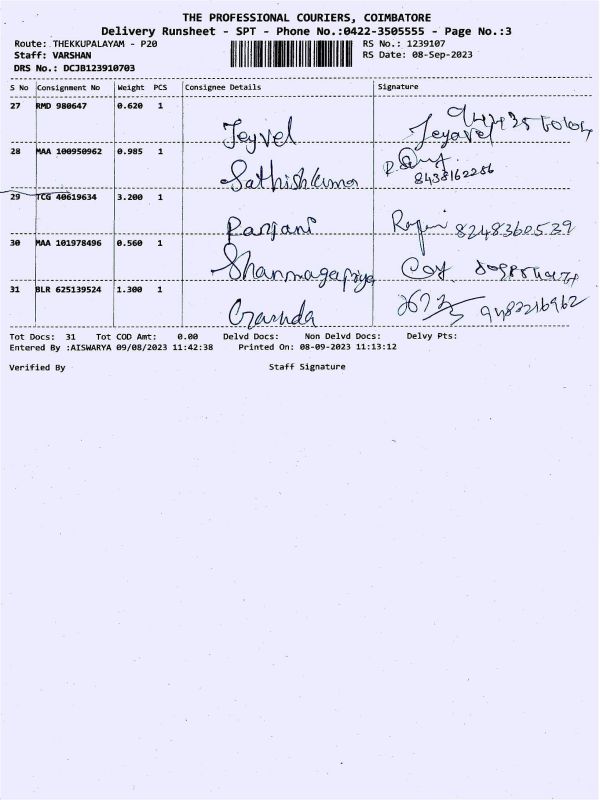 THE PROFESSIONAL COURIERS, COIMBATORE
Delivery Runsheet - SPT - Phone No.:0422-3505555 - Page No.:3
Route: THEKKUPALAYAM - P20 RS No.: 1239107
Staff: VARSHAN RS Date: 08-Sep-2023
DRS No.: DCJB123910703
S No Consignment No Weight PCS Consignee Details Signature
27 RMD 980647 0.620 1
Jeyvel Jeyavel
28 MAA 100950962 0.985 1
Sathishkumar 8438162286
29 TCG 40619634 3.200 1
Ranjani 8248360539
30 MAA 101978496 0.560 1
Shanmugapriya
31 BLR 625139524 1.300 1
9483216962
Tot Docs: 31 Tot COD Amt: 0.00 Delvd Docs: Non Delvd Docs: Delvy Pts:
Entered By :AISWARYA 09/08/2023 11:42:38 Printed On: 08-09-2023 11:13:12
Verified By Staff Signature